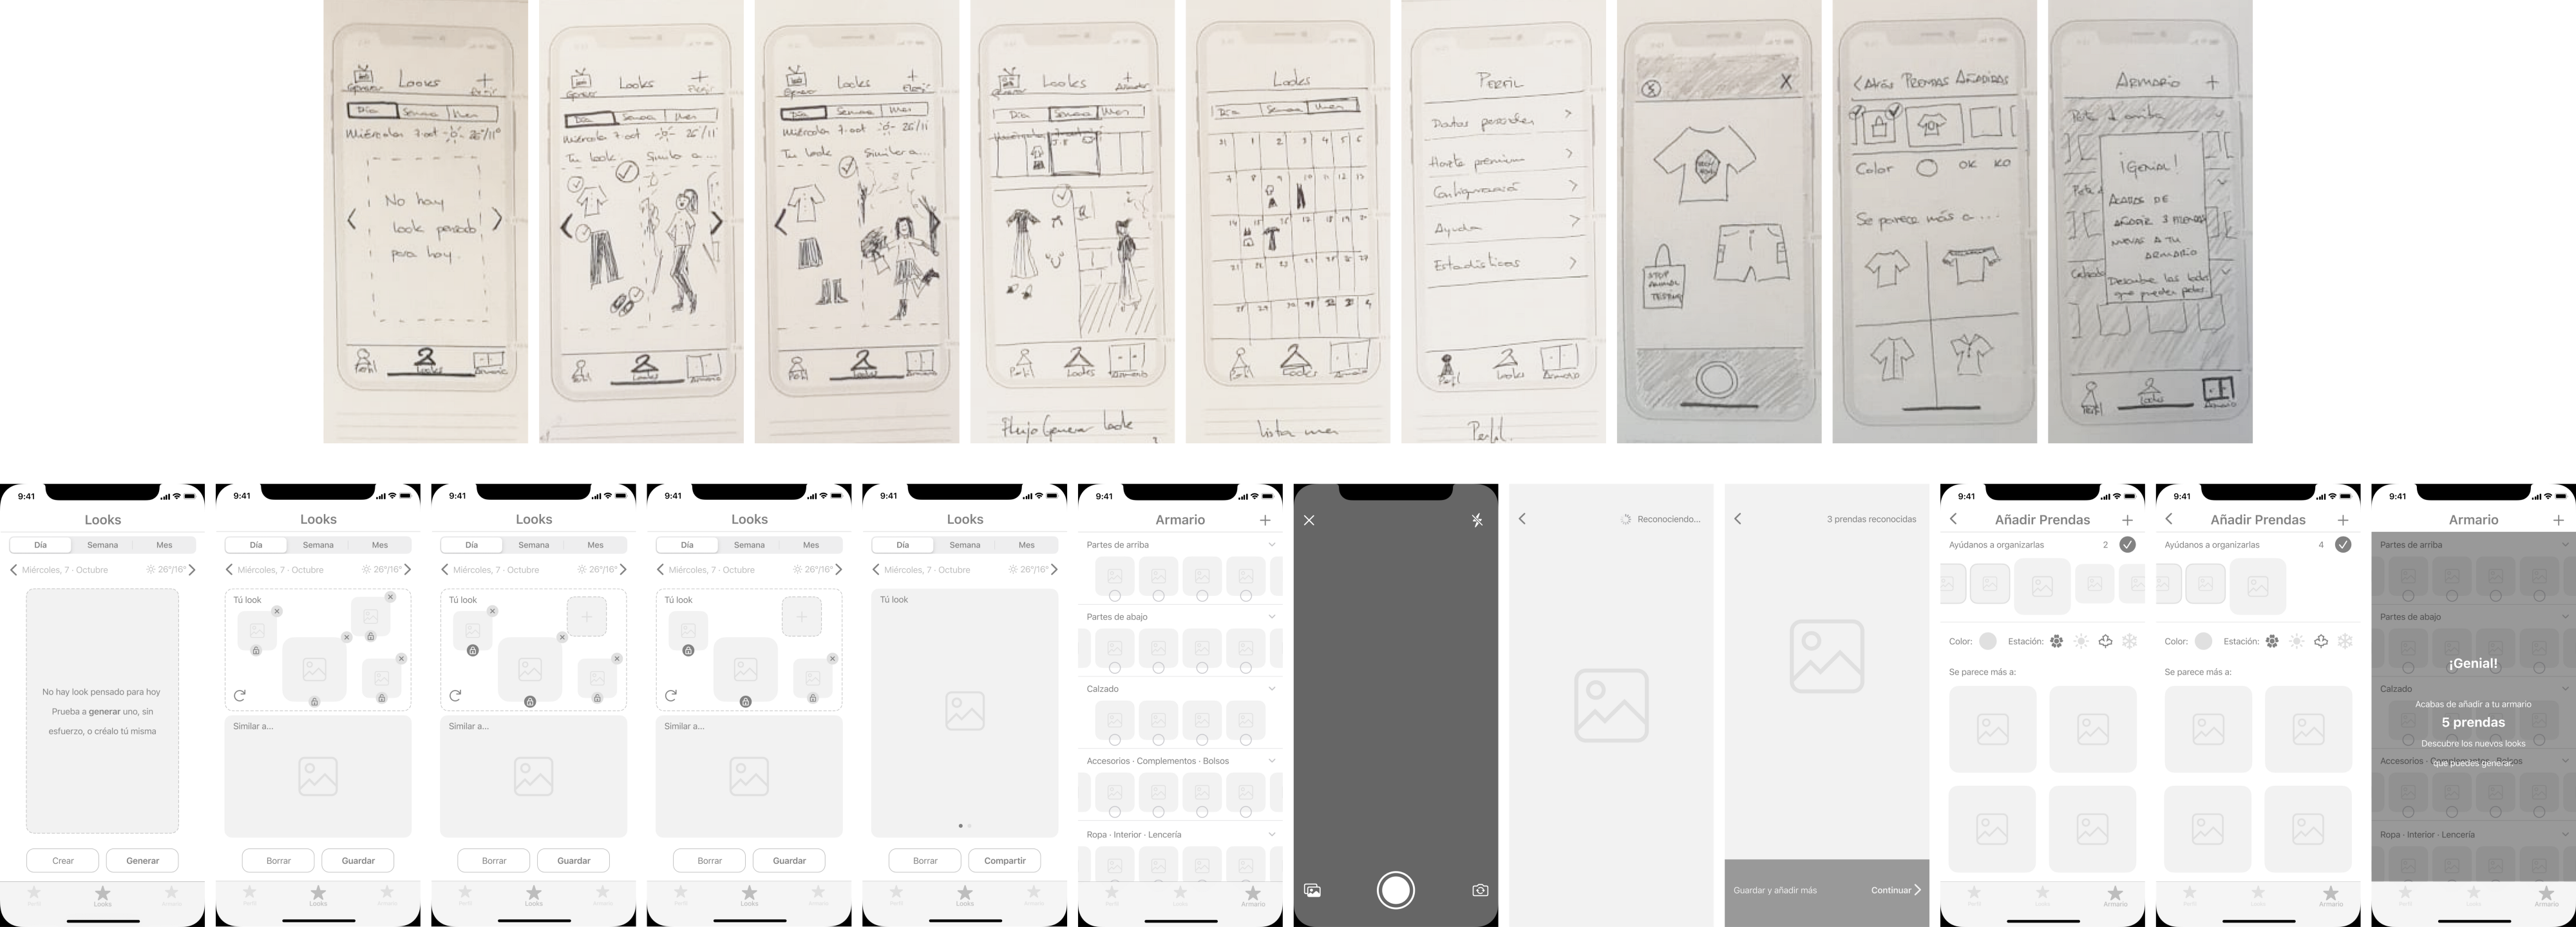 Looks
Día Semana Mes
Miércoles 7 oct 26°/11°
No hay
look pensado
para hoy.
Perfil Looks Armario
Looks
Día Semana Mes
Miércoles 7 oct 26°/11
Tu look Similar a...
Perfil Looks Armario
Looks
Día Semana Mes
Miércoles 7 oct 26°/11
Tu look Similar a...
Perfil Looks Armario
Looks
Día Semana Mes
Perfil Looks Armario
Flujo Generar look
Looks
Día Semana Mes
Perfil Looks Armario
Perfil
Datos personales
Hazte premium
Configuración
Ayuda
Estadísticas
Perfil Looks Armario
Perfil.
STOP
ANIMAL
TESTING
Atrás PRENDAS AÑADIDAS
Color OK KO
Se parece más a...
ARMARIO +
¡Genial!
ACABAS DE
AÑADIR 3 PRENDAS
NUEVAS A TU
ARMARIO
Descubre los looks
que puedes
Perfil Looks Armario
9:41
Looks
Día Semana Mes
Miércoles, 7 · Octubre 26°/16°
No hay look pensado para hoy
Prueba a generar uno, sin
esfuerzo, o créalo tú misma
Crear Generar
Perfil Looks Armario
9:41
Looks
Día Semana Mes
Miércoles, 7 · Octubre 26°/16°
Tú look
Similar a...
Borrar Guardar
Perfil Looks Armario
9:41
Looks
Día Semana Mes
Miércoles, 7 · Octubre 26°/16°
Tú look
Similar a...
Borrar Guardar
Perfil Looks Armario
9:41
Looks
Día Semana Mes
Miércoles, 7 · Octubre 26°/16°
Tú look
Similar a...
Borrar Guardar
Perfil Looks Armario
9:41
Looks
Día Semana Mes
Miércoles, 7 · Octubre 26°/16°
Tú look
Borrar Compartir
Perfil Looks Armario
9:41
Armario
Partes de arriba
Partes de abajo
Calzado
Accesorios · Complementos · Bolsos
Ropa · Interior · Lencería
Perfil Looks Armario
Reconociendo...
3 prendas reconocidas
Guardar y añadir más Continuar
9:41
Añadir Prendas
Ayúdanos a organizarlas 2
Color: Estación:
Se parece más a:
Perfil Looks Armario
9:41
Añadir Prendas
Ayúdanos a organizarlas 4
Color: Estación:
Se parece más a:
Perfil Looks Armario
9:41
Armario
Partes de arriba
Partes de abajo
¡Genial!
Calzado
Acabas de añadir a tu armario
5 prendas
Descubre los nuevos looks
Accesorios · Complementos · Bolsos
que puedes generar.
Ropa · Interior · Lencería
Perfil Looks Armario